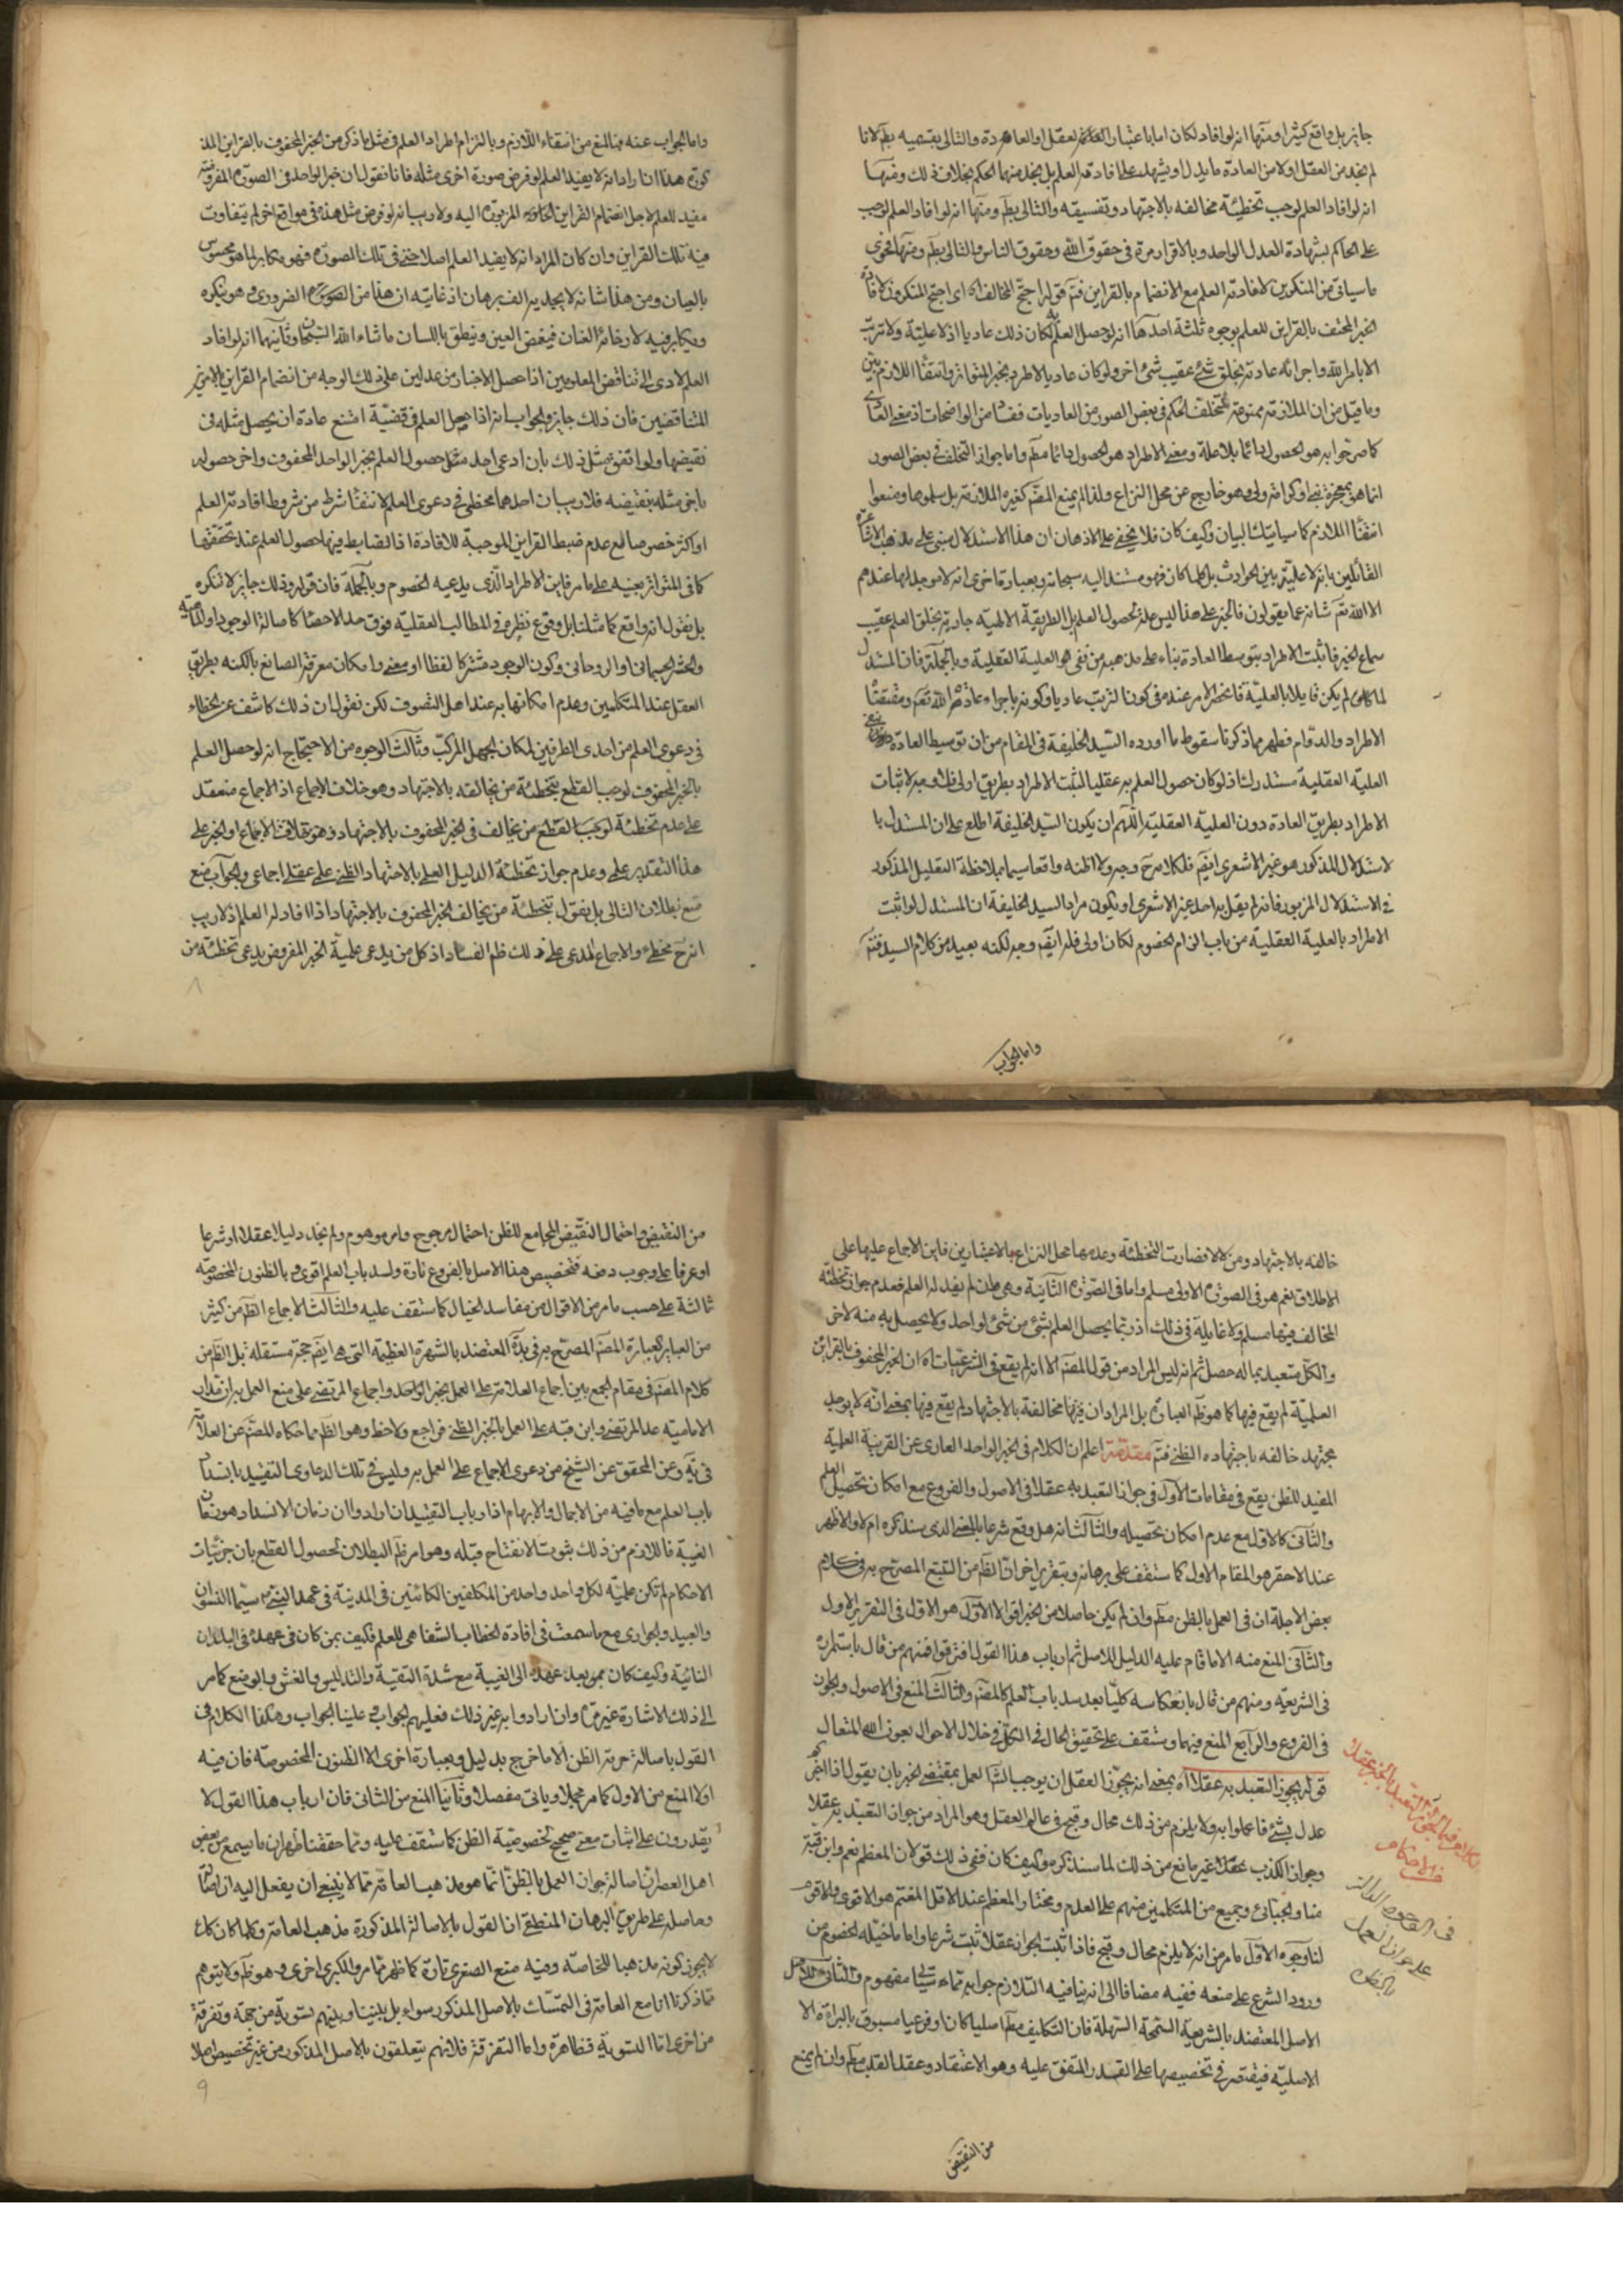 جايز بل واقع كثيرا ومنها انه لو افاد لكان اما باعتبار العقل او العادة والتالى بقسميه بطم لانا
لم نجد من العقل ولا من العادة ما يدل او يشهد على افادته العلم بل نجد منهما الحكم بخلاف ذلك ومنها
انه لو افاد العلم لوجب تخطئة مخالفه بالاجتهاد وتفسيقه والتالى بطم ومنها انه لو افاد العلم لوجب
على الحاكم بشهادة العدل الواحد وبالاقرار مرة فى حقوق الله وحقوق الناس والتالى بطم ومنها فحوى
ما سياتى من المنكرين لافادته العلم مع الانضمام بالقراين فتم قوله احتج المخالف اه اى احتج المنكرون لافادة
الخبر المحتف بالقراين للعلم بوجوه ثلثة احدها انه لو حصل العلم به لكان ذلك عاديا اذ لا علية ولا ترتب
الا باراد الله واجرائه عادته بخلق شئ عقيب شئ اخر ولو كان عاديا لاطرد كخبر المتواتر وانتفاء اللازم بين
وما قيل من ان الملازمة ممنوعة لتخلف الحكم فى بعض الصور من العاديات ففساده من الواضحات اذ معنى العادى
كما صرحوا به هو الحصول دائما بلا علة ومعنى الاطراد هو الحصول دائما مطم واما جواز التخلف فى بعض الصور
انما هو بمعجزة نبى او كرامة ولى وهو خارج عن محل النزاع ولذا لم يمنع المصنف كغيره الملازمة بل سلموها ومنعوا
انتفاء اللازم كما سياتيك البيان وكيف كان فلا يخفى على الاذهان ان هذا الاستدلال مبنى على مذهب الاشاعرة
القائلين بانه لا علية بين الحوادث بل كلما كان فهو مستند اليه سبحانه وبعبارة اخرى انه لا موجد لها عندهم
الا الله تعم شانه عما يقولون فالخبر على هذا ليس علة لحصول العلم بل الطريقة الالهية جارية بخلق العلم عقيب
سماع الخبر فاثبت الاطراد بتوسط العادة بناء على مذهبه من نفى العلية العقلية وبالجملة فان المستدل
لما لم يكن قايلا بالعلية فانحصر الامر عنده فى كون الترتب عاديا وكونه باجراء عادة الله تعم ومقتضاه
الاطراد والدوام فظهر مما ذكرنا سقوط ما اورده السيد الخليفة فى المقام من ان توسيط العادة ونفى
العلية العقلية مستدرك اذ لو كان حصول العلم به عقليا لثبت الاطراد بطريق اولى فلا وجه لاثبات
الاطراد بطريق العادة دون العلية العقلية اللهم ان يكون السيد الخليفة اطلع على ان المستدل با
لاستدلال المذكور هو غير الاشعرى ايضم فلكلامه ح وجه ولا اظنه واقعا سيما بملاحظة التعليل المذكور
فى الاستدلال المزبور فانه لم يقل به احد غير الاشعرى او يكون مراد السيد الخليفة ان المستدل لو اثبت
الاطراد بالعلية العقلية من باب الزام الخصوم لكان اولى فله ايضم وجه لكنه بعيد من كلام السيد فتم
واما الجواب
واما الجواب عنه فبالمنع من انتفاء اللازم وبالتزام اطراد العلم فى مثل ما ذكر من الخبر المحفوف بالقراين المذ
كورة هذا ان اراد انه لا يفيد العلم لو فرض صورة اخرى مثله فانا نقول ان خبر الواحد فى الصورة المفروضة
مفيد للعلم لاجل انضمام القراين المزبورة اليه ولا ريب انه لو فرض مثل هذه فى مواقع اخر لم يتفاوت
فيه تلك القراين وان كان المراد انه لا يفيد العلم اصلا حتى فى تلك الصورة فهو مكابر لما هو محسوس
بالعيان ومن هذا شانه لا يجديه الف برهان اذ غايته ان هذا من الضرورى وهو ينكره
ويكابر فيه لارخائه العنان فيغمض العين وينطق باللسان ما شاء الله السبحان وثانيها انه لو افاد
العلم لادى الى تناقض المعلومين اذا حصل الاخبار من عدلين على ذلك الوجه من انضمام القراين بالامرين
المتناقضين فان ذلك جايز والجواب انه اذا حصل العلم فى قضية امتنع عادة ان يحصل مثله فى
نقيضها ولو اتفق مثل ذلك بان ادعى احد مثل حصول العلم بخبر الواحد المحفوف واخر حصوله
باخر مثله بنقيضه فلا ريب ان احدهما مخطئ فى دعوى العلم لانتفاء شرط من شروط افادته العلم
او اكثر خصوصا مع عدم ضبط القراين الموجبة للافادة اذ الضابط فيها حصول العلم عند تحققها
كما فى المتواتر بعينه على ما مر فاين الاطراد الذى يدعيه الخصوم وبالجملة فان قوله وذلك جايز لا ننكره
بل نقول انه واقع كما مثلنا بل وقوع نظيره فى المطالب العقلية فوق حد الاحصاء كاصالة الوجود او الماهية
والحشر الجسمانى او الروحانى وكون الوجود مشتركا لفظا او معنى وامكان معرفة الصانع بالكنه بطريق
العقل عند المتكلمين وعدم امكانها به عند اهل التصوف لكن نقول ان ذلك كاشف عن الخطاء
فى دعوى العلم من احدى الطرفين لمكان الجهل المركب وثالث الوجوه من الاحتجاج انه لو حصل العلم
بالخبر المحفوف لوجب القطع بتخطئة من يخالفه بالاجتهاد وهو خلاف الاجماع اذ الاجماع منعقد
على عدم تخطئة من يخالف فى الخبر المحفوف بالاجتهاد
هذا التقدير علمى وعدم جواز تخطئة الدليل العلمى بالاجتهاد الظنى على عقلى اجماعى والجواب منع
منع بطلان التالى بل نقول بتخطئة من يخالف الخبر المحفوف بالاجتهاد اذا افاد له العلم اذ لا ريب
انه ح مخطئ والاجماع المدعى على ذلك ظم الفساد اذ كل من يدعى علمية الخبر المفروض يدعى تخطئة من
٨
خالفه بالاجتهاد ومن لا فصارت التخطئة وعدمها محل النزاع بالاعتبارين فاين الاجماع عليها على
الاطلاق نعم هو فى الصورة الاولى مسلم واما فى الصورة الثانية وهى ما لم يفيد له العلم فعدم جواز تخطئة
المخالف فيها مسلم ولا غايلة فى ذلك اذ ربما يحصل العلم بشئ من شئ لواحد ولا يحصل به منه لاخر
والكل متعبد بما له حصل ثم انه ليس المراد من قول المصنف الا انه لم يقع فى الشرعيات اه ان الخبر المحفوف بالقراين
العلمية لم يقع فيها كما هو ظم العبارة بل المراد ان فيها مخالفة بالاجتهاد لم يقع فيها بمعنى انه لا يوجد
مجتهد خالفه باجتهاده الظنى فتم مقدمة اعلم ان الكلام فى الخبر الواحد العارى عن القرينة العلمية
المفيد للظن يقع فى مقامات الاول فى جواز التعبد به عقلا فى الاصول والفروع مع امكان تحصيل العلم
والثانى كالاول مع عدم امكان تحصيله والثالث انه هل وقع شرعا بالمعنى الذى سنذكره ام لا والاظهر
عند الاحقر هو المقام الاول كما ستقف على برهانه وبتقرير اخر ان الظم من التتبع المصرح به فى كلام
بعض الاجلة ان فى العمل بالظن مطم وان لم يكن حاصلا من الخبر اقوالا الاول هو الاول فى التقرير الاول
والثانى المنع منه الا ما قام عليه الدليل للاصل ثم ارباب هذا القول افترقوا فمنهم من قال باستمراره
فى الشريعة ومنهم من قال بانعكاسه كليا بعد سد باب العلم كالمصنف والثالث المنع فى الاصول والجواز
فى الفروع والرابع المنع فيهما وستقف على تحقيق الحال فى الكل فى خلال الاحوال بعون الله المتعال
قوله يجوز التعبد به عقلا اه بمعنى انه يجوز العقل ان يوجب الشارع العمل بمقتضى الخبر بان يقول اذا اخبركم
عدل بشئ فاعملوا به ولا يلزم من ذلك محال وقبح فى عالم العقل وهو المراد من جواز التعبد به عقلا
وجواز الكذب عقلا غير مانع من ذلك لما سنذكره وكيف كان ففى ذلك قولان المعظم نعم وابن قبة
منا والجبائى وجميع من المتكلمين منهم على العدم ومختار المعظم عند الاقل المغتم هو الاقوى والاقوم
لنا وجوه الاول ما مر من انه لا يلزم محال وقبح فاذا ثبت الجواز عقلا ثبت شرعا واما ما خيله الخصوم من
ورود الشرع على منعه ففيه مضافا الى انه ينافيه التلازم جوابه مفهوم والثانى الاصل
الاصل المعتضد بالشريعة السمحة السهلة فان التكليف مطم اصليا كان او فرعيا مسبوق بالبراءة الا
الاصلية فيقتصر فى تخصيصها على القدر المتفق عليه وهو الاعتقاد وعقد القلب مطم وان لم يمنع
فى الوجوه الدالة
على جواز العمل
من النقيض
من النقيض واحتمال النقيض المجامع للظن احتمال مرجوح وامر موهوم ولم نجد دليلا عقلا او شرعا
او عرفا على وجوب دفعه فتخصيص هذا الاصل بالفروع تارة ولسد باب العلم اقوى وبالظنون المخصوصة
ثالثة على حسب ما مر من الاقوال من مفاسد الخيال كما ستقف عليه والثالث الاجماع الظم من كثير
من العباير كعبارة المصنف المصرح به فى يه المعتضد بالشهرة العظيمة التى هى ايضم حجة مستقلة بل الظم من
كلام المصنف فى مقام الجمع بين اجماع العلامة على العمل بخبر الواحد واجماع المرتضى على منع العمل به ان مدار
الامامية عدا المرتضى وابن قبه على العمل بالخبر الظنى فراجع ولاحظ وهو الظم مما حكاه المصنف عن العلامة
فى يه وعن المحقق عن الشيخ من دعوى الاجماع على العمل به وليس فى تلك الدعاوى التقييد بانسداد
باب العلم مع ما فيه من الاجمال والابهام اذ ارباب التقييد ان ارادوا ان زمان الانسداد هو زمان
الغيبة فاللازم من ذلك ثبوت الانفتاح قبله وهو امر ظم البطلان لحصول القطع بان جزئيات
الاحكام لم تكن علمية لكل واحد واحد من المكلفين الكائنين فى المدينة فى عهد النبى ص سيما النسوان
والعبيد والجوارى مع ما سمعت فى افادة الخطاب الشفاهى للعلم فكيف بمن كان فى عهده فى البلدان
النائية وكيف كان ممن بعد عهده الى الغيبة مع شدة التقية والتدليس والغش والوضع كما مر
الى ذلك الاشارة غير مرة وان ارادوا به غير ذلك فعليهم الجواب وعلينا الجواب وهكذا الكلام فى
القول باصالة حرمة الظن الا ما خرج بدليل وبعبارة اخرى الا الظنون المخصوصة فان فيه
اولا المنع من الاول كما مر مجملا وياتى مفصلا وثانيا المنع من الثانى فان ارباب هذا القول لا
يقدرون على اثبات معنى صحيح لخصوصية الظن كما ستقف عليه ومما حققنا ظهر ان ما يسمع من بعض
اهل العصر ان اصالة جواز العمل بالظن انما هو مذهب العامة مما لا ينبغى ان يفعل اليه
وحاصله على طريق البرهان المنطقى ان القول بالاصالة المذكورة مذهب العامة وكلما كان كك
لا يجوز كونه مذهبا للخاصة وفيه منع الصغرى تارة كما ظهر مما مر والكبرى اخرى وهو ظم ولا يتوهم
مما ذكرنا انا مع العامة فى التمسك بالاصل المذكور سواء بل بيننا وبينهم تسوية من جهة وتفرقة
من اخرى اما التسوية فظاهرة واما التفرقة فلانهم يتعلقون بالاصل المذكور من غير تخصيص اصلا
٩